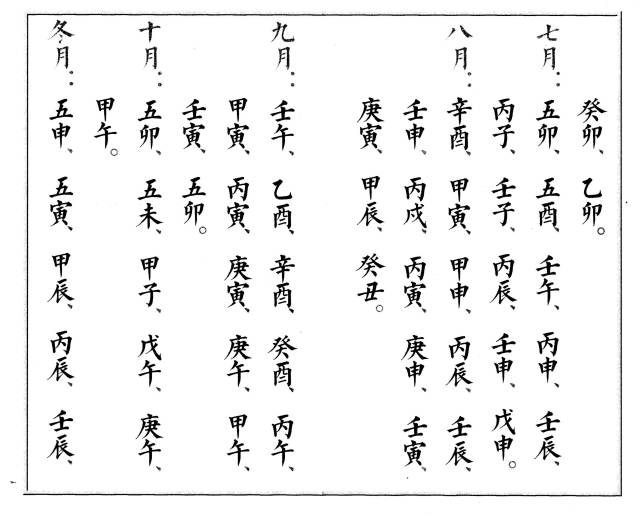 癸卯、乙卯。
七月：五卯、五酉、壬午、丙申、壬辰、
丙子、壬子、丙辰、壬申、戊申。
八月：辛酉、甲寅、甲申、丙辰、壬辰、
壬申、丙戍、丙寅、庚申、壬寅、
庚寅、甲辰、癸丑。
九月：壬午、乙酉、辛酉、癸酉、丙午、
甲寅、丙寅、庚寅、庚午、甲午、
壬寅、五卯。
十月：五卯、五未、甲子、戊午、庚午、
甲午。
冬月：五申、五寅、甲辰、丙辰、壬辰、